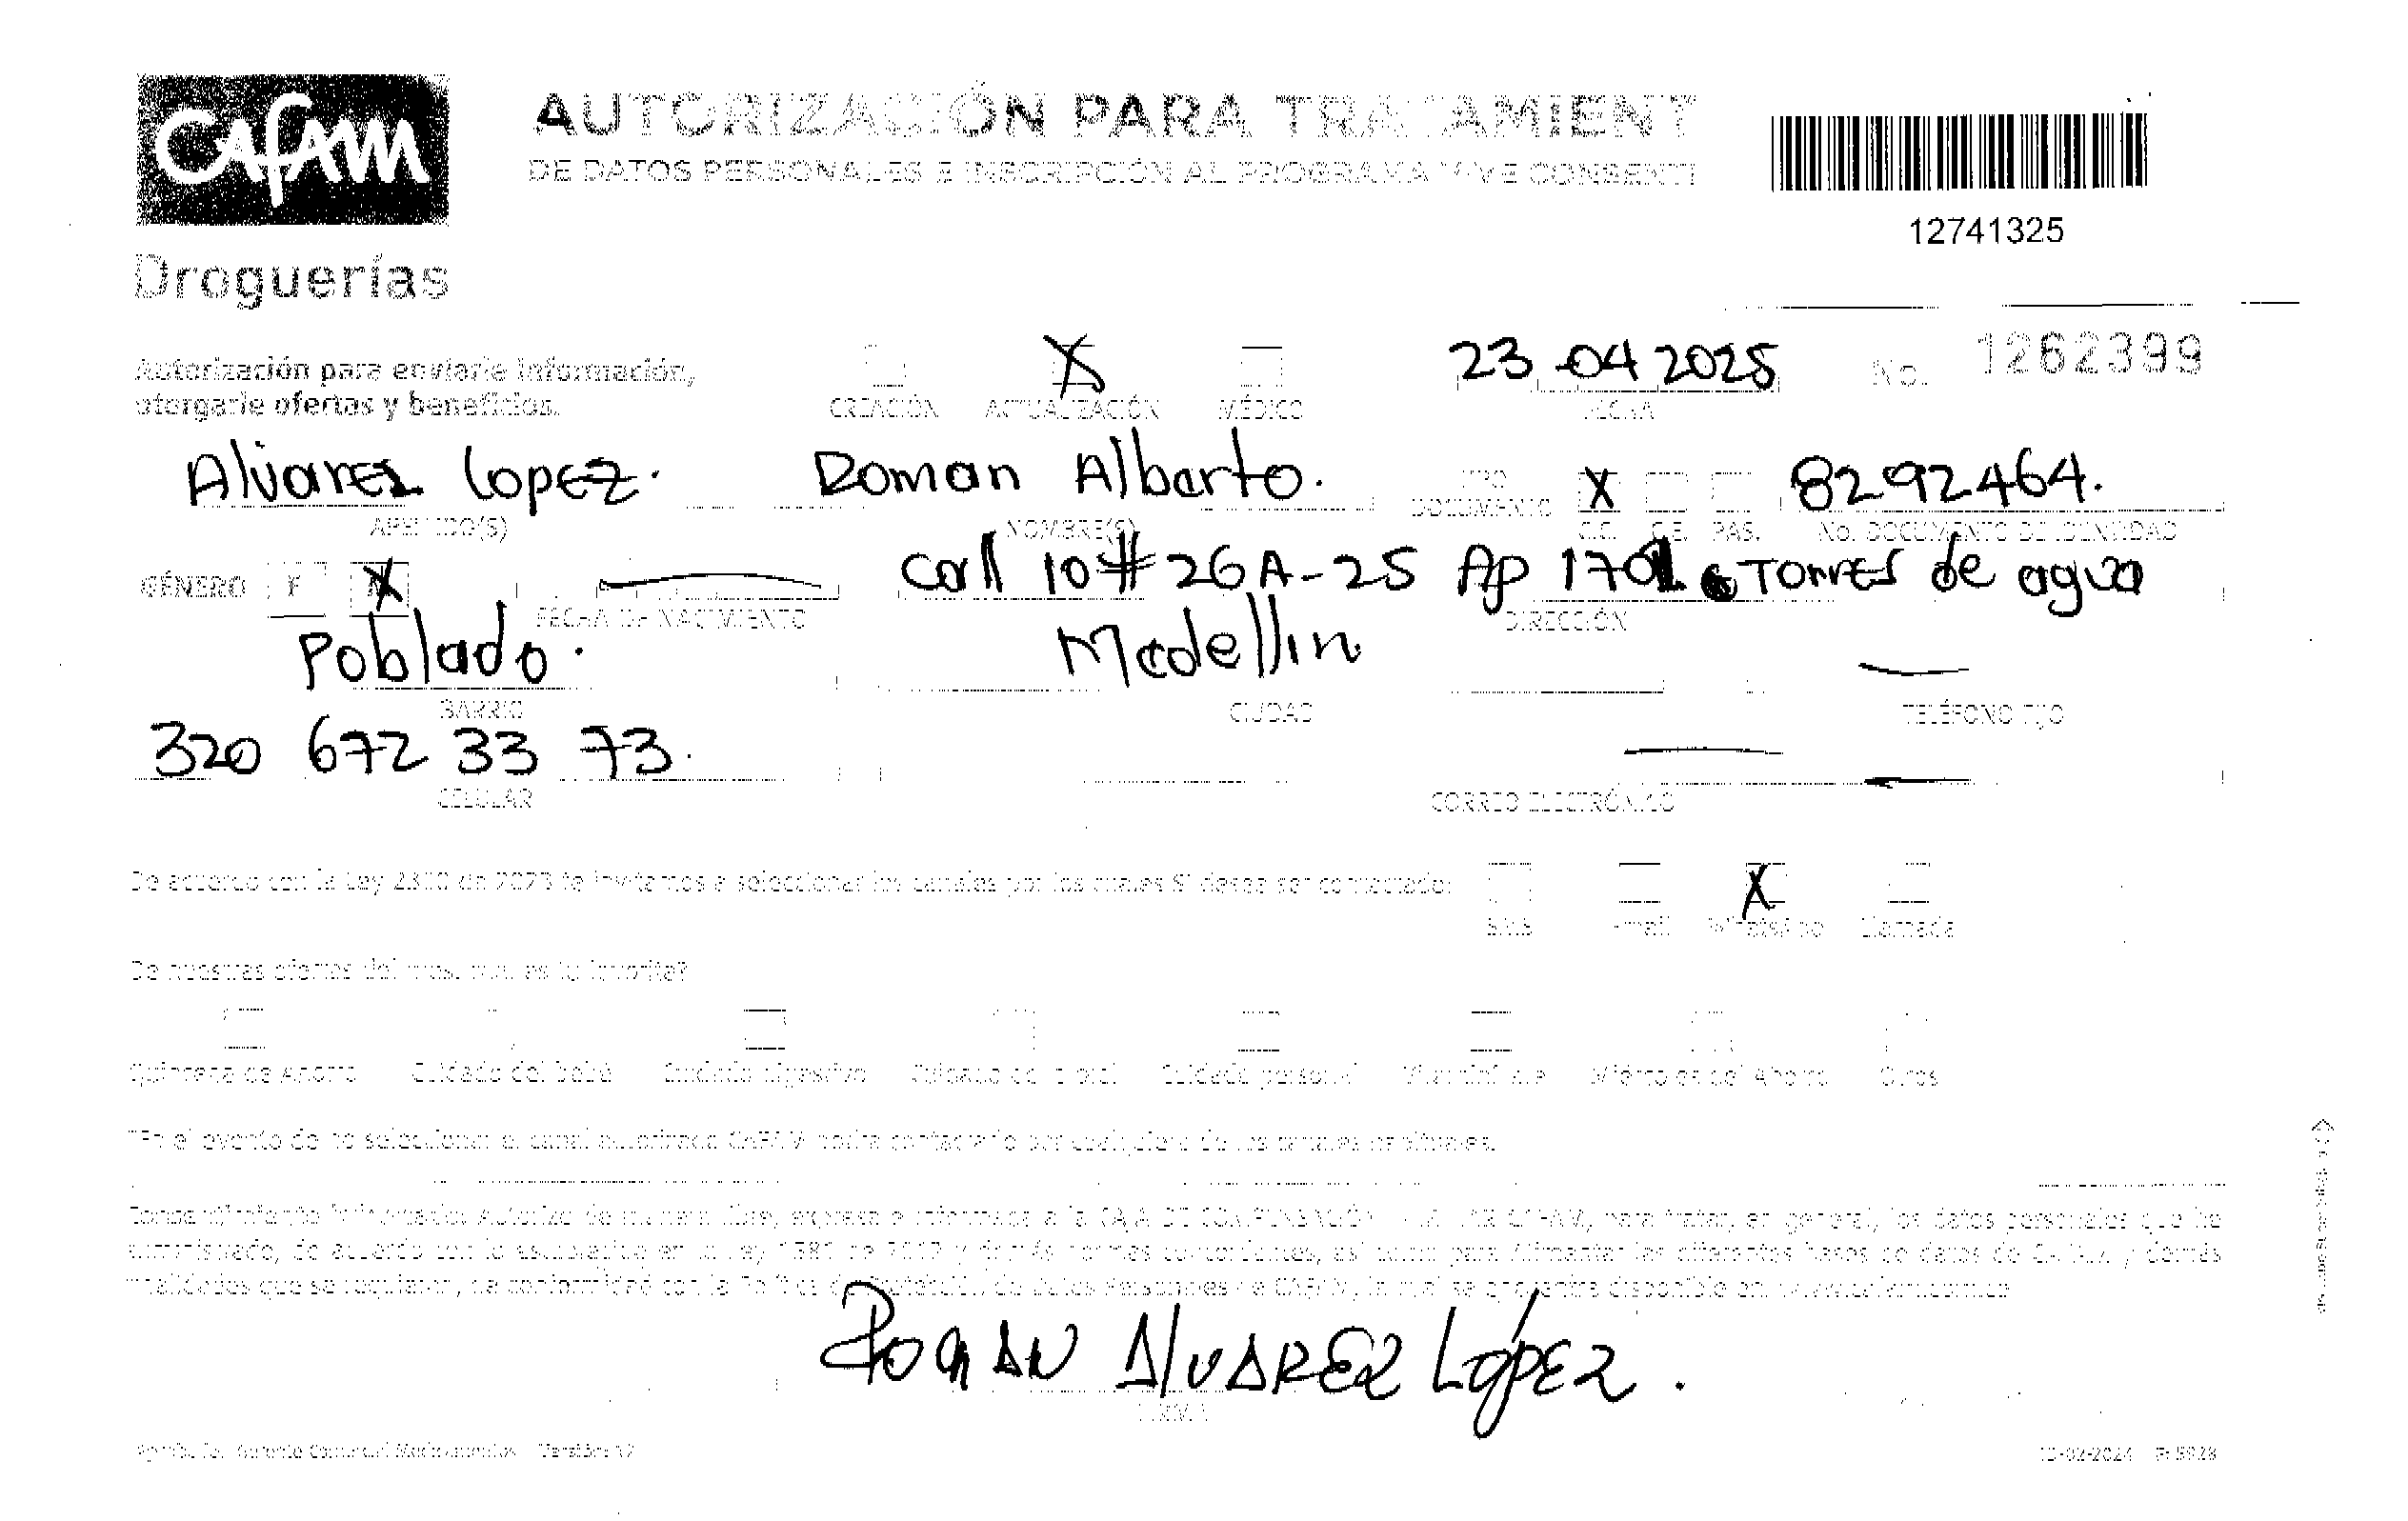 Cafam
AUTORIZACIÓN PARA TRATAMIENT
DE DATOS PERSONALES E INSCRIPCIÓN AL PROGRAMA VIVE CONSENTI
12741325
Droguerías
Autorización para enviarle información,
otorgarle ofertas y beneficios.
CREACIÓN ACTUALIZACIÓN X MÉDICO
23 04 2025
FECHA
No. 1262399
Alvarez Lopez. Roman Alberto. TIPO DOCUMENTO X 8292464.
APELLIDO(S) NOMBRE(S) C.C. C.E. PAS. No. DOCUMENTO DE IDENTIDAD
GÉNERO F X Call 10 # 26A-25 Ap 1701 Torres de agua
FECHA DE NACIMIENTO DIRECCIÓN
Poblado. Medellin
BARRIO CIUDAD TELÉFONO FIJO
320 672 33 73.
CELULAR CORREO ELECTRÓNICO
De acuerdo con la Ley 2300 de 2023 te invitamos a seleccionar los canales por los cuales SÍ desea ser contactado:
X
SMS Email WhatsApp Llamada
De nuestras ofertas del mes,
Quincena de Ahorro Cuidado del bebé Cuidado digestivo Cuidado Cuidado personal Miércoles del Ahorro Otros
*En el evento de no seleccionar el canal autorizado CAFAM podrá contactarlo por cualquiera de los canales
autorizo de manera libre, expresa e informada a la CAJA DE COMPENSACIÓN FAMILIAR CAFAM, para tratar, en general, los datos personales que he
suministrado, de acuerdo con lo establecido en la Ley 1581 de 2012 y demás normas concordantes, así como para alimentar las diferentes bases de datos de CAFAM y demás
finalidades que se requieran, de conformidad con la Política de Protección de Datos Personales de CAFAM, la cual se encuentra disponible en: www.cafam.com.co
Roman Alvarez López.
FIRMA
Versión: 12
12-02-2024